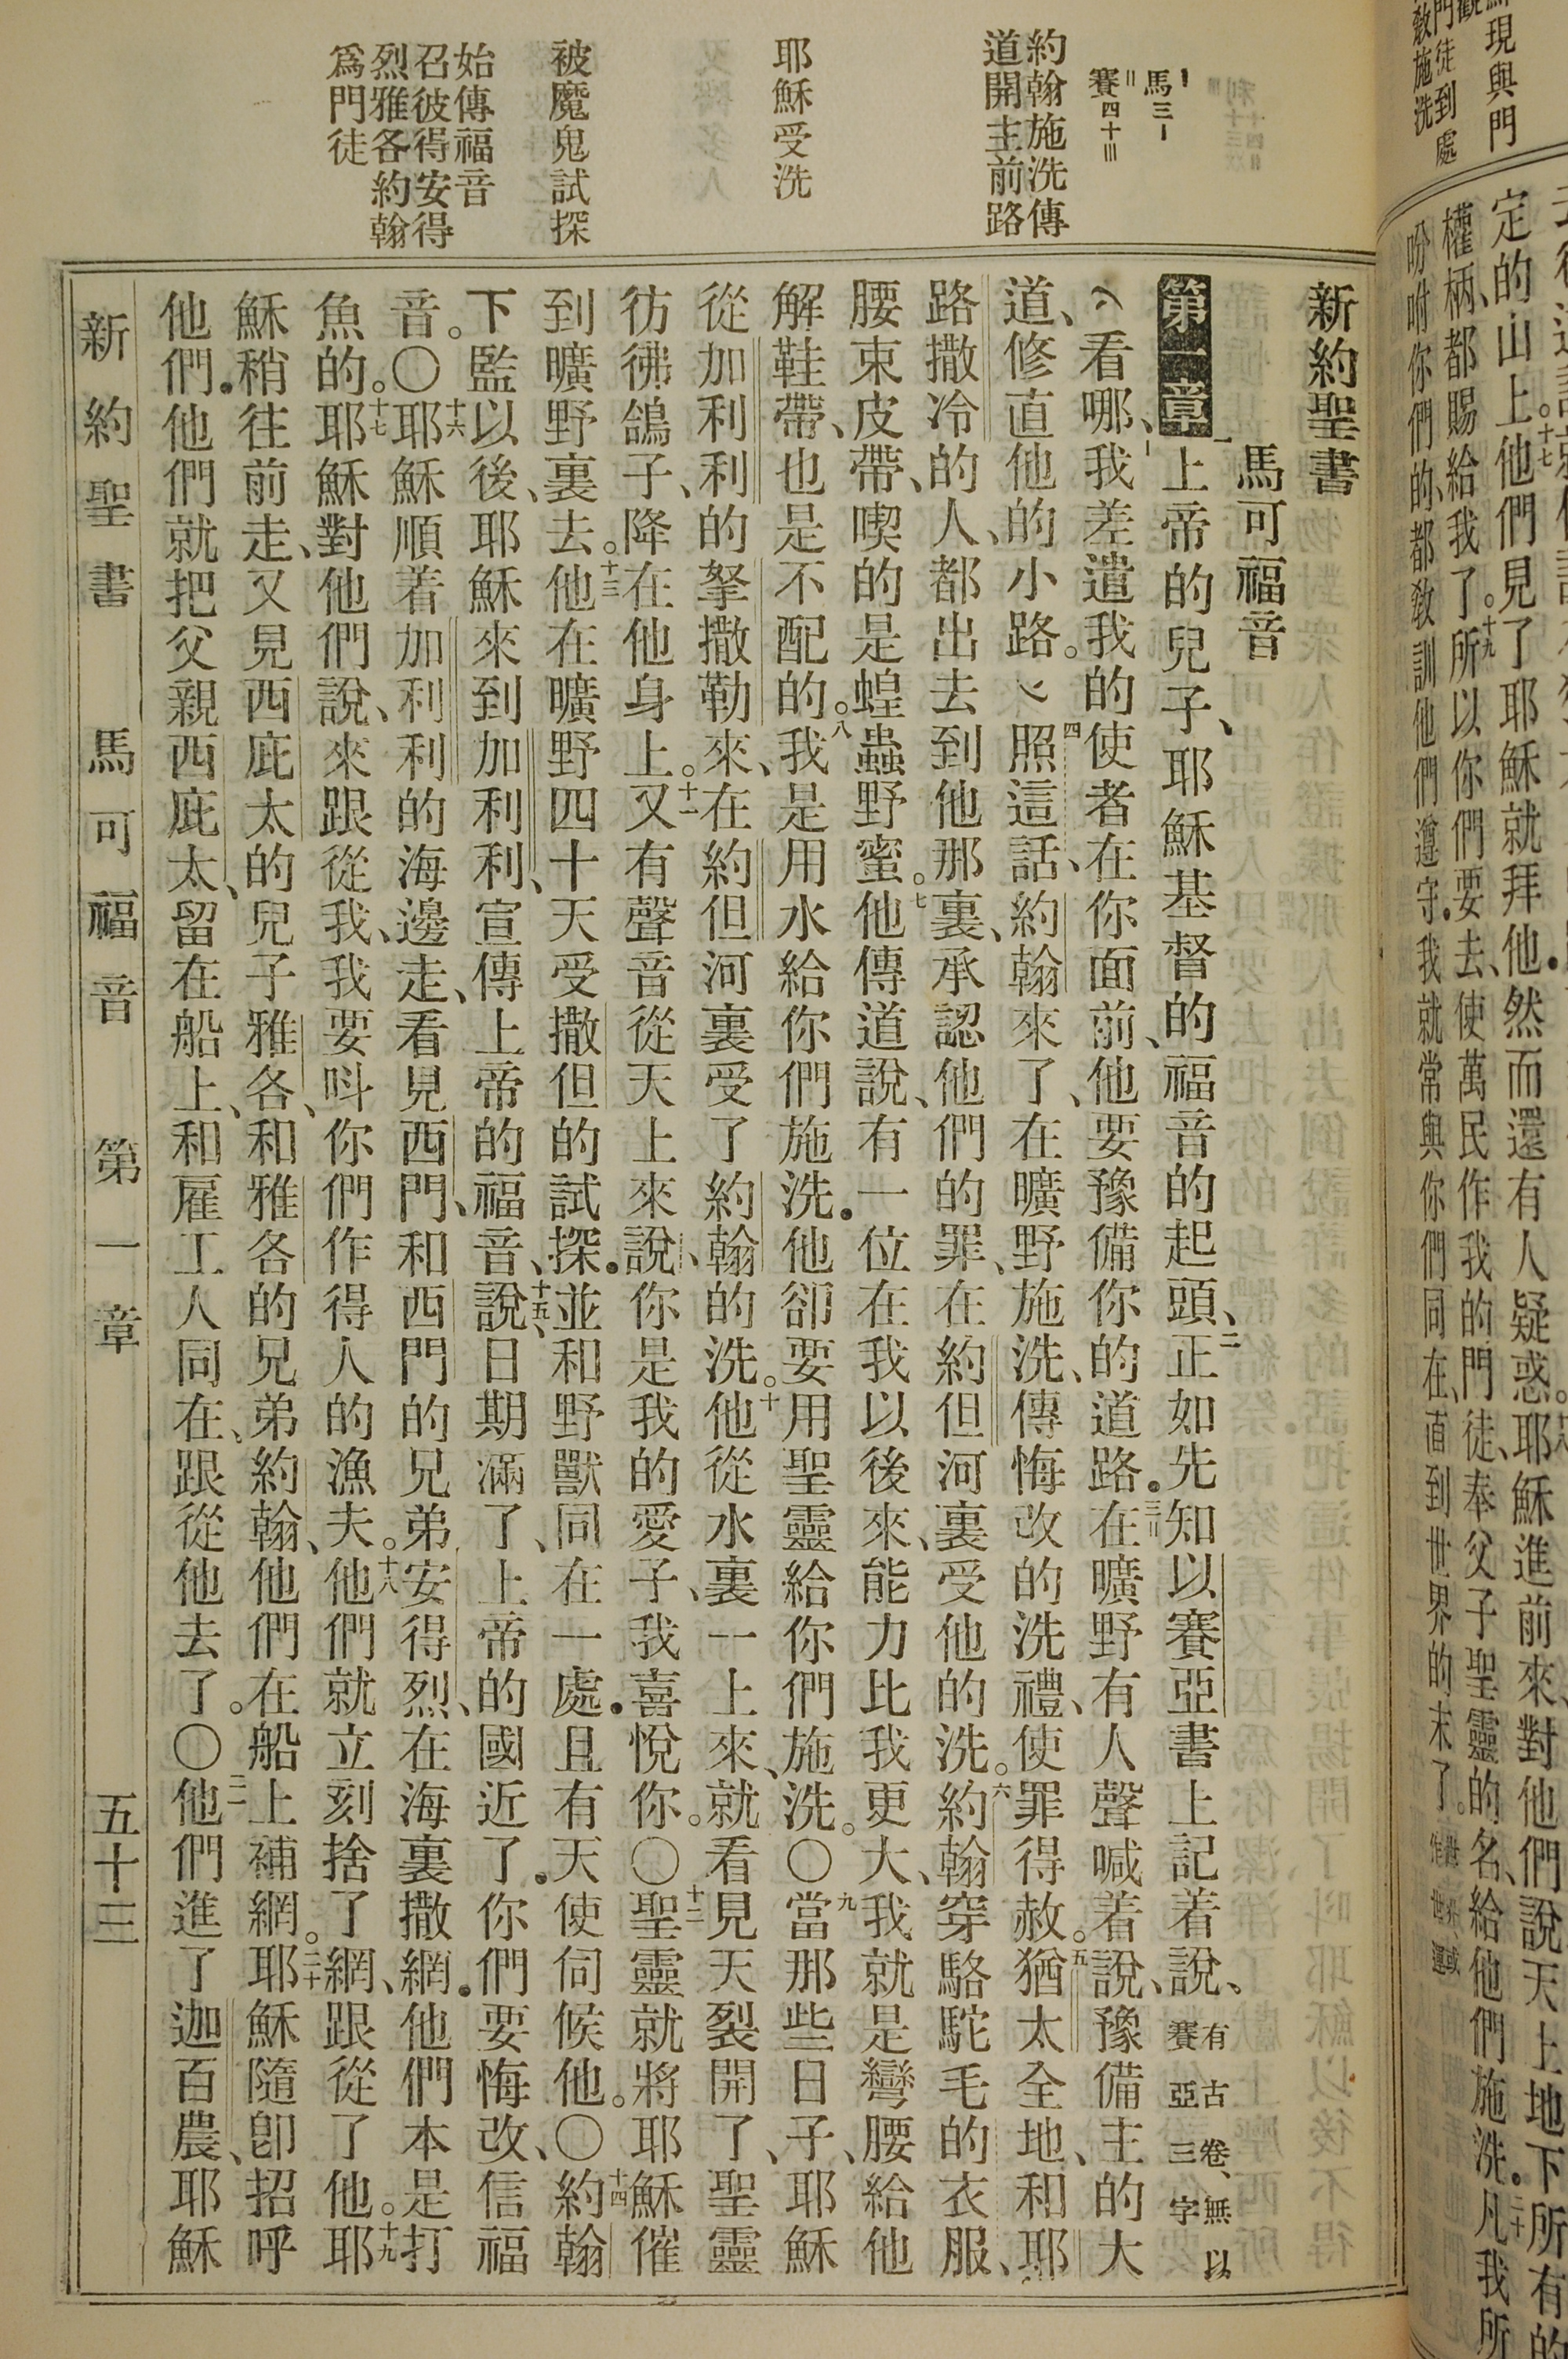 新約聖書
馬可福音
第一章 一上帝的兒子、耶穌基督的福音的起頭、二正如先知以賽亞書上記着說、有古卷、無以賽亞三字
看哪、我差遣我的使者在你面前、他要豫備你的道路．三在曠野有人聲喊着說、豫備主的大
道、修直他的小路。四照這話、約翰來了、在曠野施洗、傳悔改的洗禮、使罪得赦。五猶太全地、和耶
路撒冷的人、都出去到他那裏、承認他們的罪、在約但河裏受他的洗。六約翰穿駱駝毛的衣服、
腰束皮帶、喫的是蝗蟲野蜜。七他傳道說、有一位在我以後來、能力比我更大、我就是彎腰給他
解鞋帶、也是不配的。八我是用水給你們施洗．他卻要用聖靈給你們施洗。○九當那些日子、耶穌
從加利利的拏撒勒來、在約但河裏受了約翰的洗。十他從水裏一上來、就看見天裂開了、聖靈
彷彿鴿子、降在他身上。十一又有聲音從天上來說、你是我的愛子、我喜悅你。○十二聖靈就將耶穌催
到曠野裏去。十三他在曠野四十天受撒但的試探．並和野獸同在一處．且有天使伺候他。○十四約翰
下監以後、耶穌來到加利利、宣傳上帝的福音、十五說、日期滿了、上帝的國近了．你們要悔改、信福
音。○十六耶穌順着加利利的海邊走、看見西門、和西門的兄弟安得烈、在海裏撒網．他們本是打
魚的。十七耶穌對他們說、來跟從我、我要呌你們作得人的漁夫。十八他們就立刻捨了網、跟從了他。十九耶
穌稍往前走、又見西庇太的兒子雅各、和雅各的兄弟約翰、他們在船上補網。二十耶穌隨卽招呼
他們．他們就把父親西庇太、留在船上、和雇工人同在、跟從他去了。○二一他們進了迦百農、耶穌
新約聖書 馬可福音 第一章 五十三
馬三1
賽四十3
約翰施洗傳
道開主前路
耶穌受洗
被魔鬼試探
始傳福音
召彼得安得
烈雅各約翰
爲門徒
現與門
門徒到處
敎施洗
定的山上。十七他們見了耶穌就拜他．然而還有人疑惑。十八耶穌進前來、對他們說、天上地下所有的
權柄、都賜給我了。十九所以你們要去、使萬民作我的門徒、奉父子聖靈的名、給他們施洗．二十凡我所
吩咐你們的、都敎訓他們遵守．我就常與你們同在、直到世界的末了。